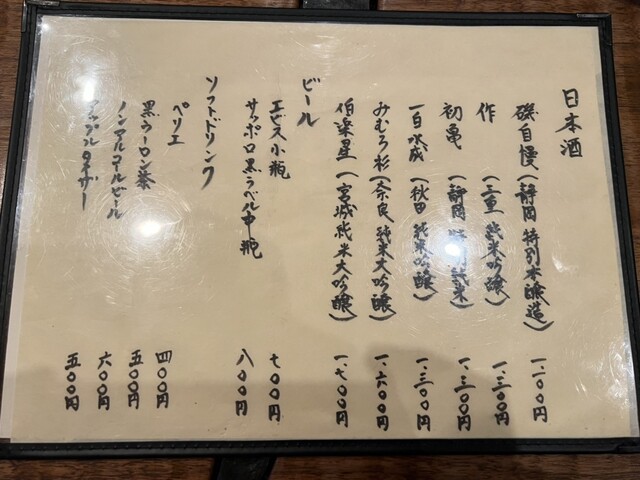 日本酒
磯自慢(静岡 特別本醸造) 一、一〇〇円
作 (三重 純米吟醸) 一、三〇〇円
初亀 (静岡 特別純米) 一、三〇〇円
一白水成 (秋田 純米吟醸) 一、三〇〇円
みむろ杉 (奈良 純米大吟醸) 一、六〇〇円
伯楽星 (宮城 純米大吟醸) 一、七〇〇円
ビール
エビス小瓶 七〇〇円
サッポロ黒ラベル中瓶 八〇〇円
ソフトドリンク
ペリエ 四〇〇円
黒ウーロン茶 五〇〇円
ノンアルコールビール 六〇〇円
アップルタイザー 五〇〇円